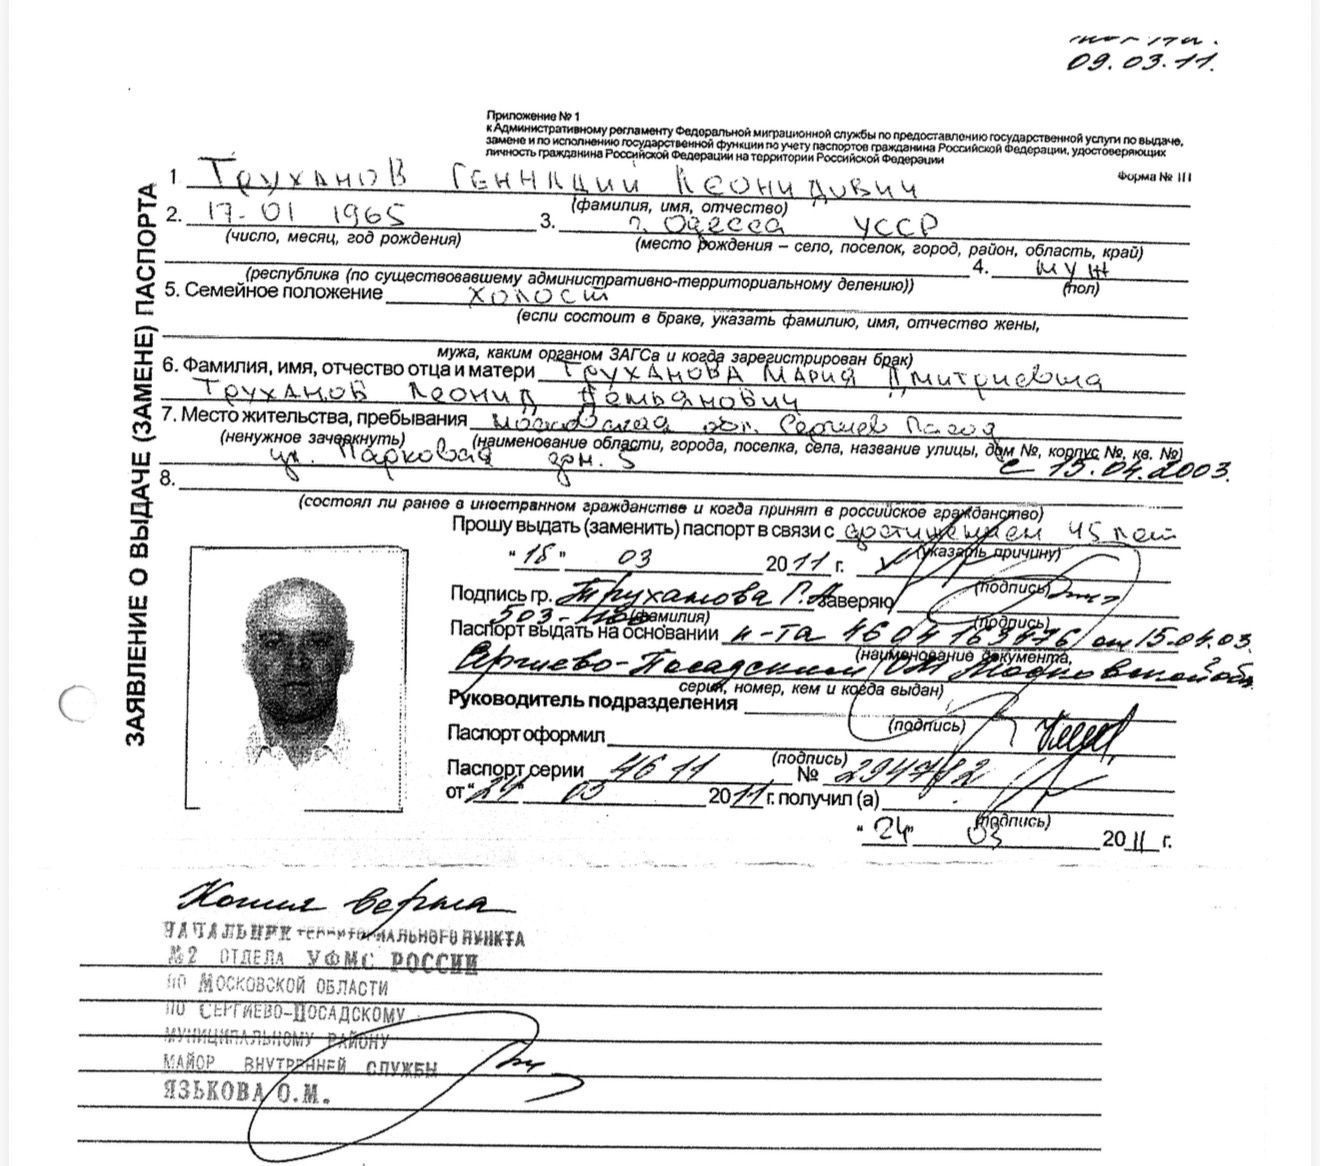 09.03.11.
Приложение № 1
к Административному регламенту Федеральной миграционной службы по предоставлению государственной услуги по выдаче,
замене и по исполнению государственной функции по учету паспортов гражданина Российской Федерации, удостоверяющих
личность гражданина Российской Федерации на территории Российской Федерации
Форма № 1П
ЗАЯВЛЕНИЕ О ВЫДАЧЕ (ЗАМЕНЕ) ПАСПОРТА
1 Труханов Геннадий Леонидович
(фамилия, имя, отчество)
2. 17-01 1965 3. г. Одесса УССР
(число, месяц, год рождения) (место рождения – село, поселок, город, район, область, край)
4. муж
(республика (по существовавшему административно-территориальному делению)) (пол)
5. Семейное положение холост
(если состоит в браке, указать фамилию, имя, отчество жены,
мужа, каким органом ЗАГСа и когда зарегистрирован брак)
6. Фамилия, имя, отчество отца и матери Труханова Мария Дмитриевна
Труханов Леонид Демьянович
7. Место жительства, пребывания Московская обл. Сергиев Посад
(ненужное зачеркнуть) (наименование области, города, поселка, села, название улицы, дом №, корпус №, кв. №)
ул. Парковая дом. 5 с 15.04.2003.
8.
(состоял ли ранее в иностранном гражданстве и когда принят в российское гражданство)
Прошу выдать (заменить) паспорт в связи с достижением 45 лет
(указать причину)
"18" 03 2011 г.
(подпись)
Подпись гр. Труханова Г.Л. заверяю
(фамилия) (подпись)
503-
Паспорт выдать на основании п-та 4604 163476 от 15.04.03.
(наименование документа,
Сергиево-Посадским ОМ Московской обл.
серия, номер, кем и когда выдан)
Руководитель подразделения
(подпись)
Паспорт оформил
(подпись)
Паспорт серии 46 11 № 294782
от "24" 03 2011 г. получил (а)
(подпись)
"24" 03 2011 г.
Копия верна
НАЧАЛЬНИК ТЕРРИТОРИАЛЬНОГО ПУНКТА
№2 ОТДЕЛА УФМС РОССИИ
ПО МОСКОВСКОЙ ОБЛАСТИ
ПО СЕРГИЕВО-ПОСАДСКОМУ
МУНИЦИПАЛЬНОМУ РАЙОНУ
МАЙОР ВНУТРЕННЕЙ СЛУЖБЫ
ЯЗЬКОВА О.М.